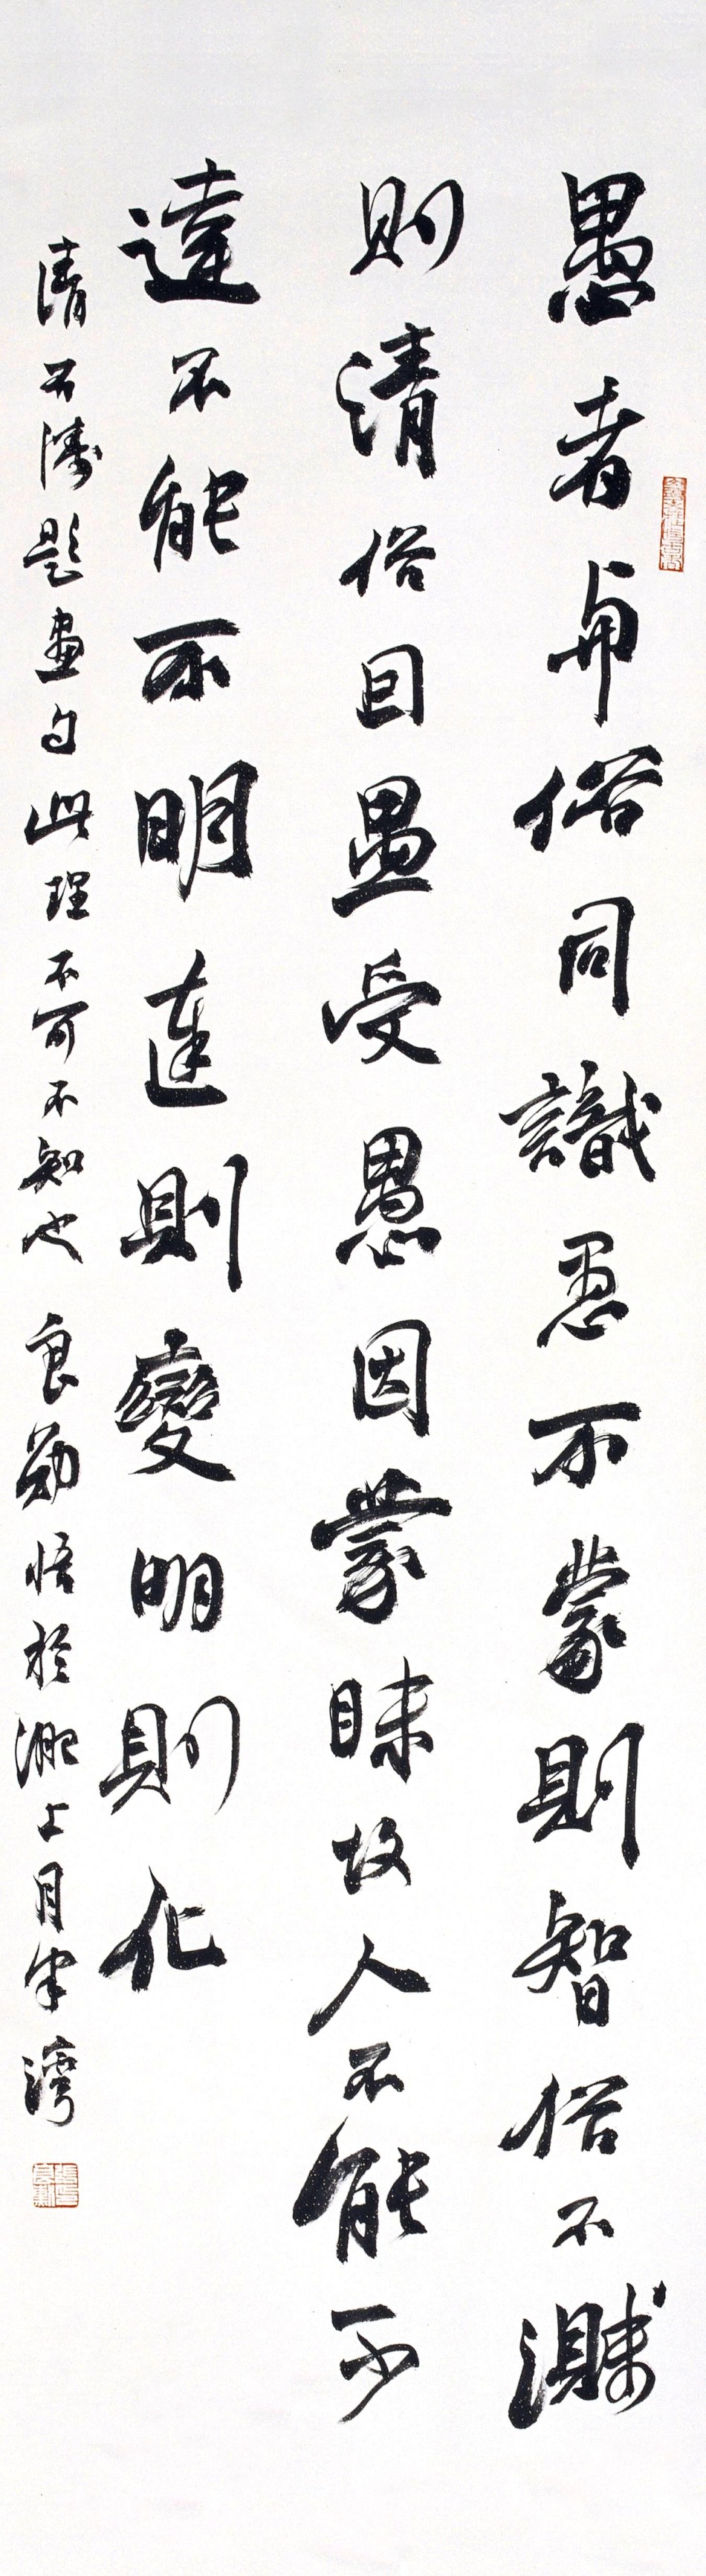 愚者與俗同識愚不蒙則智俗不濺
則清俗因愚受愚因蒙昧故人不能不
達不能不明達則變明則化
清石濤題畫句此理不可不知也 良勛悟於淝上月牙灣